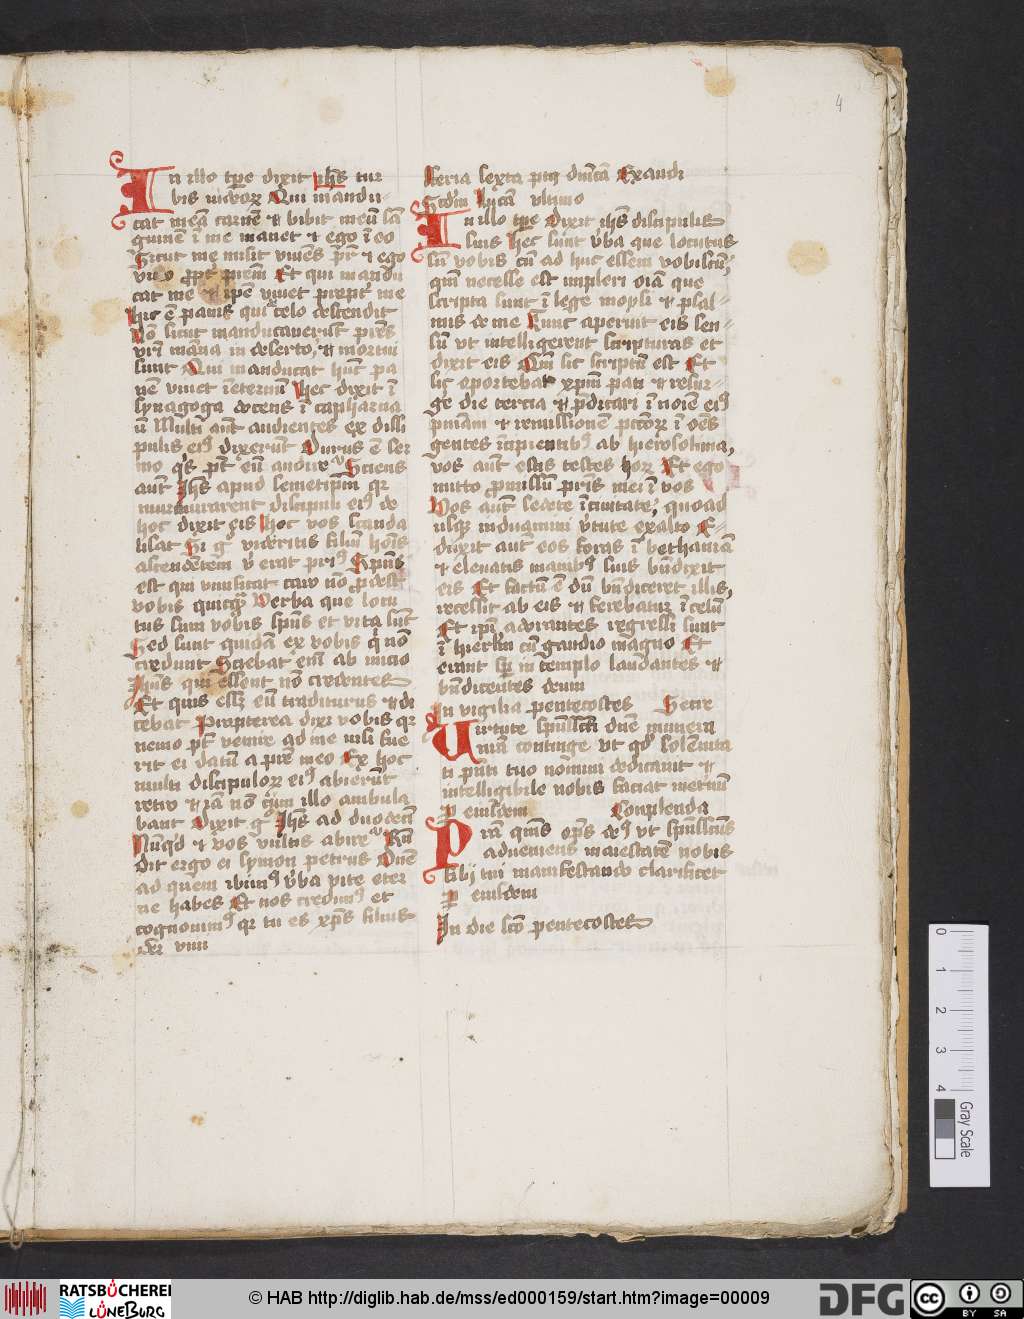 4
In illo tpe dixit ihs tur
bis iudeorz Qui mandu-
cat meā carnē et bibit meū sā
guinē ī me manet et ego ī eo
Sicut me misit viuēs pr et ego
viuo ppt prem Et qui mandu
cat me et ipe viuet propt me
hic ē panis qui celo descendit
Nō sicut manducauerūt pres
vri māna in deserto et mortui
sunt Qui manducat hūc pa
nē viuet īeternū hec dixit ī
synagoga docens ī capharna
ū Multi aut audientes ex disci
pulis eius dixerūt Durus ē ser
mo qs pt eū audire Sciens
aut Ihs apud semetipm qr
murmurarent discipuli eius de
hoc dixit eis hoc vos scanda
lisat Si g videritis filiū hoīs
ascendētem vbi erat prius Spūs
est qui viuificat caro nō prodest
vobis quicq Verba que locu
tus sum vobis spūs et vita sūt
Sed sunt quidā ex vobis q nō
credunt Sciebat eni ab inicio
Ihus qui essent nō credentes
Et quis esset eū traditurus et di
cebat Propterea dixi vobis qr
nemo pt venire ad me nisi fue
rit ei datū a pre meo Ex hoc
multi discipulorz eius abierūt
retro et iā nō cum illo ambula
bant Dixit g Ihs ad duodecī
Nūqd et vos vultis abire Rn
dit ergo ei symon petrus Dnē
ad quem ibimus vba vite eter
ne habes Et nos credimus et
cognouimus qr tu es xps filius
dei viui
Feria sexta post dnicā Exaudi
Scdm lucā vltimo
In illo tpe Dixit ihs discipulis
suis hec sunt vba que locutus
sū vobis cū ad huc essem vobiscū
qm necesse est impleri oīa que
scripta sunt ī lege moysi et psal-
mis de me Tunc aperuit eis sen-
sū vt intelligerent scripturas et
dixit eis Qm sic scriptū est Et
sic oportebat xpm pati et resur-
ge die tercia et pdicari ī noīe eius
pniam et remissionem pctorz ī oēs
gentes īcipientibus ab hierosolima
vos aut estis testes horz Et ego
mitto promissū pris mei ī vos
Vos aut sedete ī ciuitate quoad
usqz induamini vtute exalto E-
duxit aut eos foras ī bethaniā
et eleuatis manibus suis bndixit
eis Et factū ē dū bndiceret illis
recessit ab eis et ferebatur ī celū
Et ipi adorantes regressi sunt
ī hierlm cū gaudio magno Et
erant sp in templo laudantes et
bndicentes deum
In vigilia pentecostes Secre
Uirtute spūssci dne munera
nrā continge vt qd solēnita
ti pnti tuo nomini dedicauit et
intelligibile nobis faciat metuūt
p eiusdem Conplenda
Prā qms ops deus vt spūsscūs
adueniens maiestatē nobis
filij tui manifestando clarificet
p eiusdem
In die sco pentecostes
0 1 2 3 4
Gray Scale
RATSBÜCHEREI
LÜNEBURG
© HAB http://diglib.hab.de/mss/ed000159/start.htm?image=00009
DFG
cc BY SA